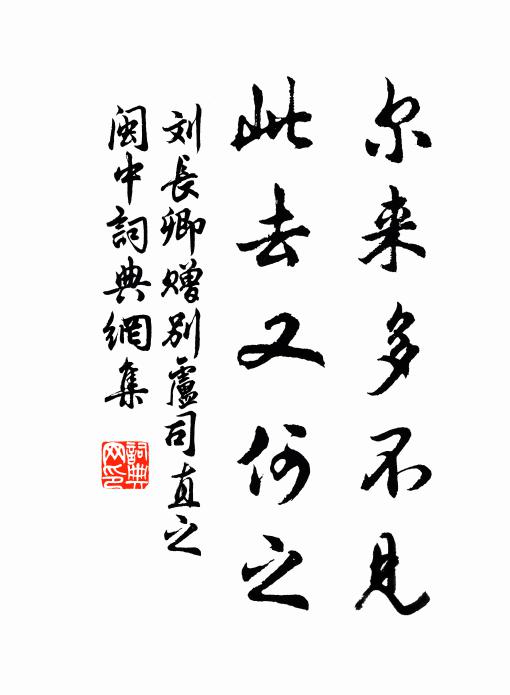 尔来多不见
此去又何之
刘長卿赠别盧司直之
闽中詞典網集
詞典
网印